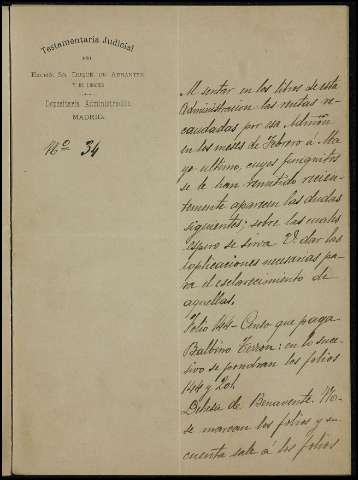 Testamentaría Judicial
DEL
EXCMO. SR. DUQUE DE ABRANTES
Y DE LINARES
Depositaría Administración
MADRID.
Nº 34
Al sentar en los libros de esta
Administración las rentas re-
caudadas por esa Admón
en los meses de Febrero á Ma
yo ultimo, cuyos finiquitos
se le han remitido recien-
temente aparecen las dudas
siguientes; sobre las cuales
espero se sirva V. dar las
esplicaciones necesarias pa-
ra el esclarecimiento de
aquellas.
Folio 144 - Censo que paga
Balbino Terron: en lo suce-
sivo se pondran los folios
144 y 201.
Dehesa de Benavente. No
se marcan los folios y su
cuenta sale á los folios